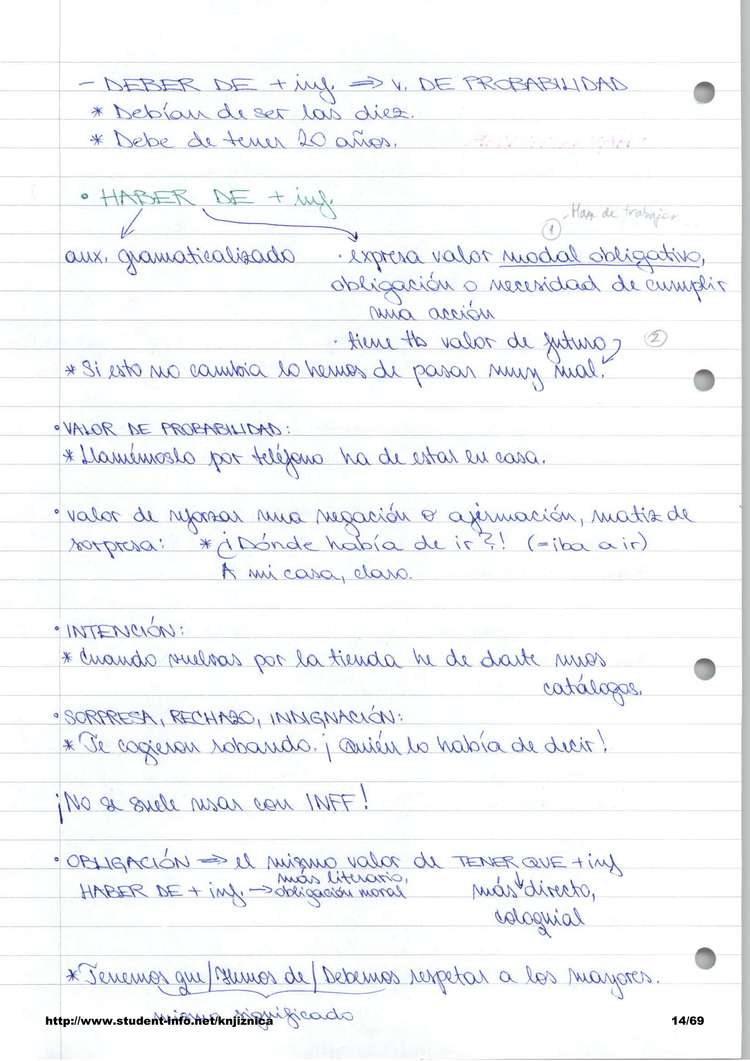 - DEBER DE + inf. ⇒ v. DE PROBABILIDAD
* Debían de ser las diez.
* Debe de tener 20 años.
• HABER DE + inf.
① Han de trabajar
aux. gramaticalizado · expresa valor modal obligativo,
obligación o necesidad de cumplir
una acción
· tiene tb valor de futuro ②
* Si esto no cambia lo hemos de pasar muy mal.
• VALOR DE PROBABILIDAD:
* Llamémoslo por teléfono ha de estar en casa.
• valor de reforzar una negación o afirmación, matiz de
sorpresa: * ¿¡Dónde había de ir?! (=iba a ir)
A mi casa, claro.
• INTENCIÓN:
* Cuando vuelvas por la tienda he de darte unos
catálogos.
• SORPRESA, RECHAZO, INDIGNACIÓN:
* Te cogieron robando. ¡Quién lo había de decir!
¡No se suele usar con INFF!
• OBLIGACIÓN ⇒ el mismo valor de TENER QUE + inf
más literario,
HABER DE + inf. → obligación moral más directo,
coloquial
* Tenemos que/Hemos de/Debemos respetar a los mayores.
mismo significado
http://www.student-info.net/knjiznica 14/69